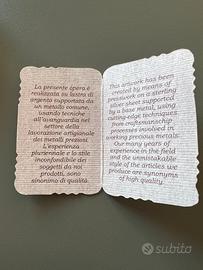 La presente opera è
realizzata su lastra di
argento supportata da
un metallo comune,
usando tecniche
all'avanguardia nel
settore della
lavorazione artigianale
dei metalli preziosi.
L'esperienza
pluriennale e lo stile
inconfondibile dei
soggetti da noi
prodotti, sono
sinonimo di qualità.
This artwork has been
created by means of
presswork on a sterling
silver sheet supported
by a base metal, using
cutting-edge techniques
from craftsmanship
processes involved in
working precious metals.
Our many years of
experience in the field
and the unmistakable
style of the articles we
produce are synonyms
of high quality.
subito